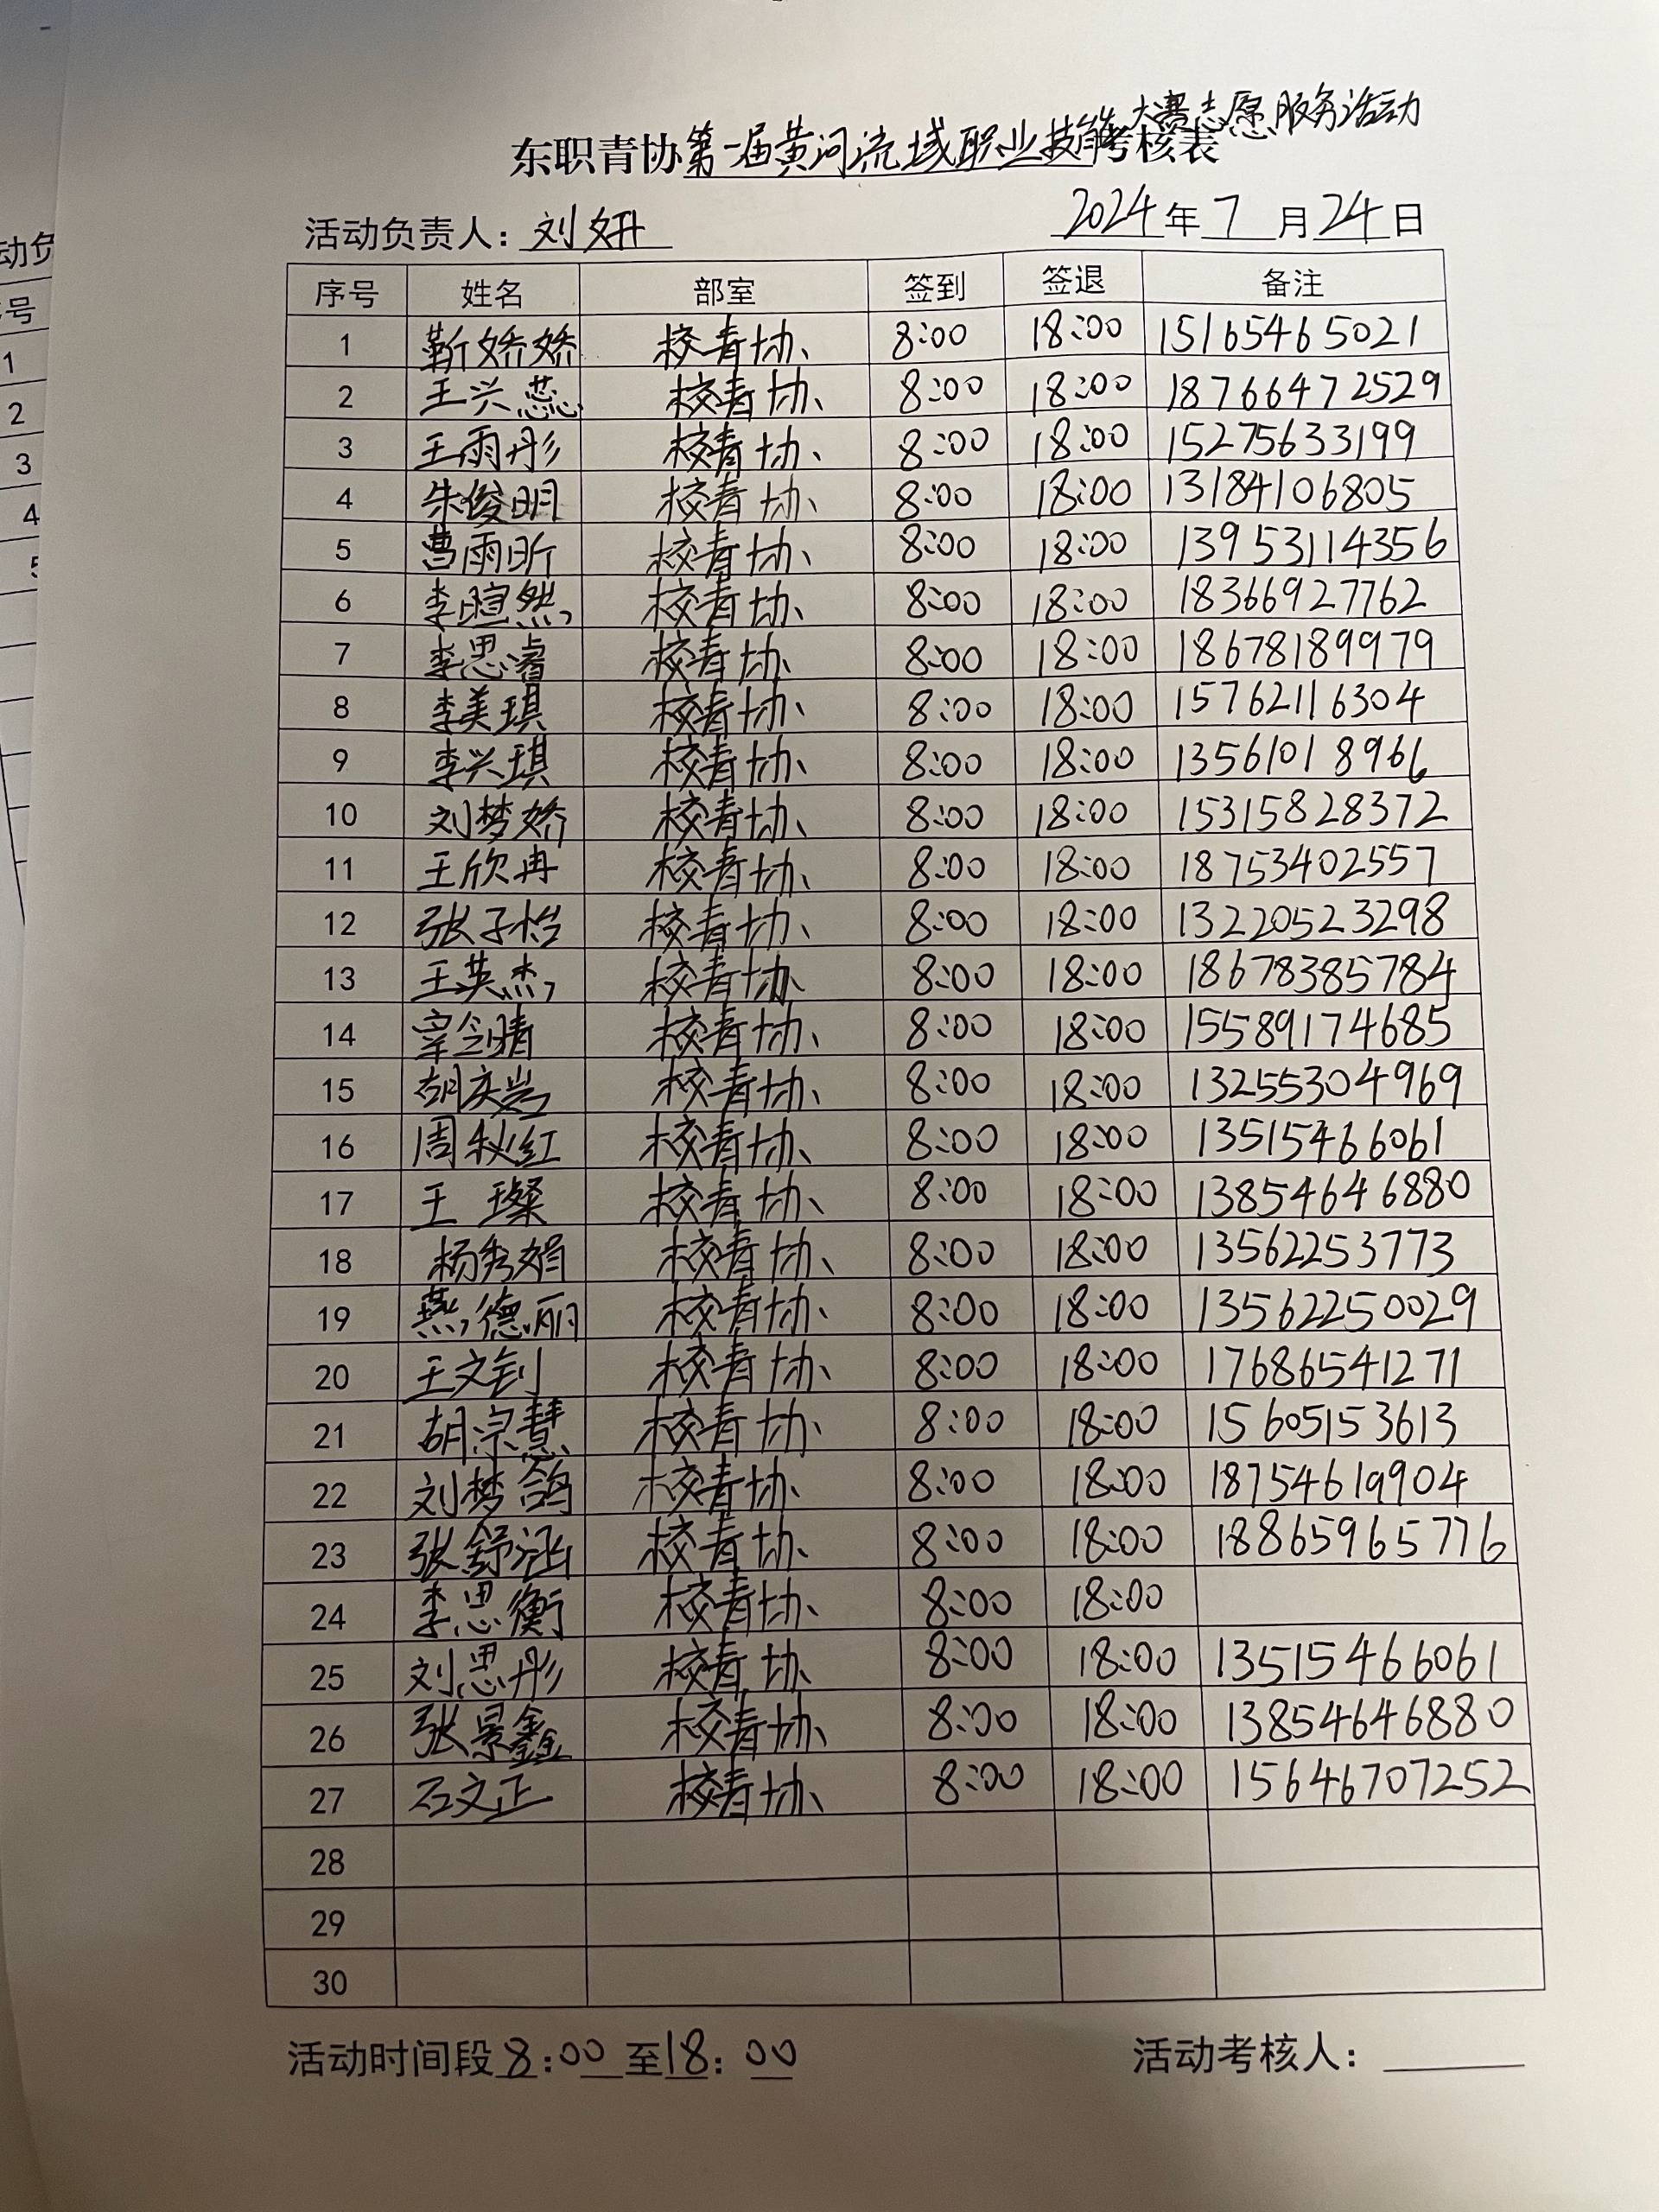 东职青协第一届黄河流域职业技能大赛志愿服务活动考核表
活动负责人：刘妍 2024年7月24日
序号 姓名 部室 签到 签退 备注
1 靳娇娇 校青协 8:00 18:00 15165465021
2 王兴蕊 校青协 8:00 18:00 18766472529
3 王雨彤 校青协 8:00 18:00 15275633199
4 朱俊明 校青协 8:00 18:00 13184106805
5 曹雨昕 校青协 8:00 18:00 13953114356
6 李暄然 校青协 8:00 18:00 18366927762
7 李思睿 校青协 8:00 18:00 18678189979
8 李美琪 校青协 8:00 18:00 15762116304
9 李兴琪 校青协 8:00 18:00 13561018966
10 刘梦娇 校青协 8:00 18:00 15315828372
11 王欣冉 校青协 8:00 18:00 18753402557
12 张子怡 校青协 8:00 18:00 13220523298
13 王英杰 校青协 8:00 18:00 18678385784
14 校青协 8:00 18:00 15589174685
15 胡庆岩 校青协 8:00 18:00 13255304969
16 周秋红 校青协 8:00 18:00 13515466061
17 王璨 校青协 8:00 18:00 13854646880
18 杨秀娟 校青协 8:00 18:00 13562253773
19 燕德丽 校青协 8:00 18:00 13562250029
20 王文钊 校青协 8:00 18:00 17686541271
21 胡宗慧 校青协 8:00 18:00 15605153613
22 刘梦鸽 校青协 8:00 18:00 18754619904
23 张舒涵 校青协 8:00 18:00 18865965776
24 李思衡 校青协 8:00 18:00
25 刘思彤 校青协 8:00 18:00 13515466061
26 张景鑫 校青协 8:00 18:00 13854646880
27 石文正 校青协 8:00 18:00 15646707252
28
29
30
活动时间段8:00至18:00 活动考核人：